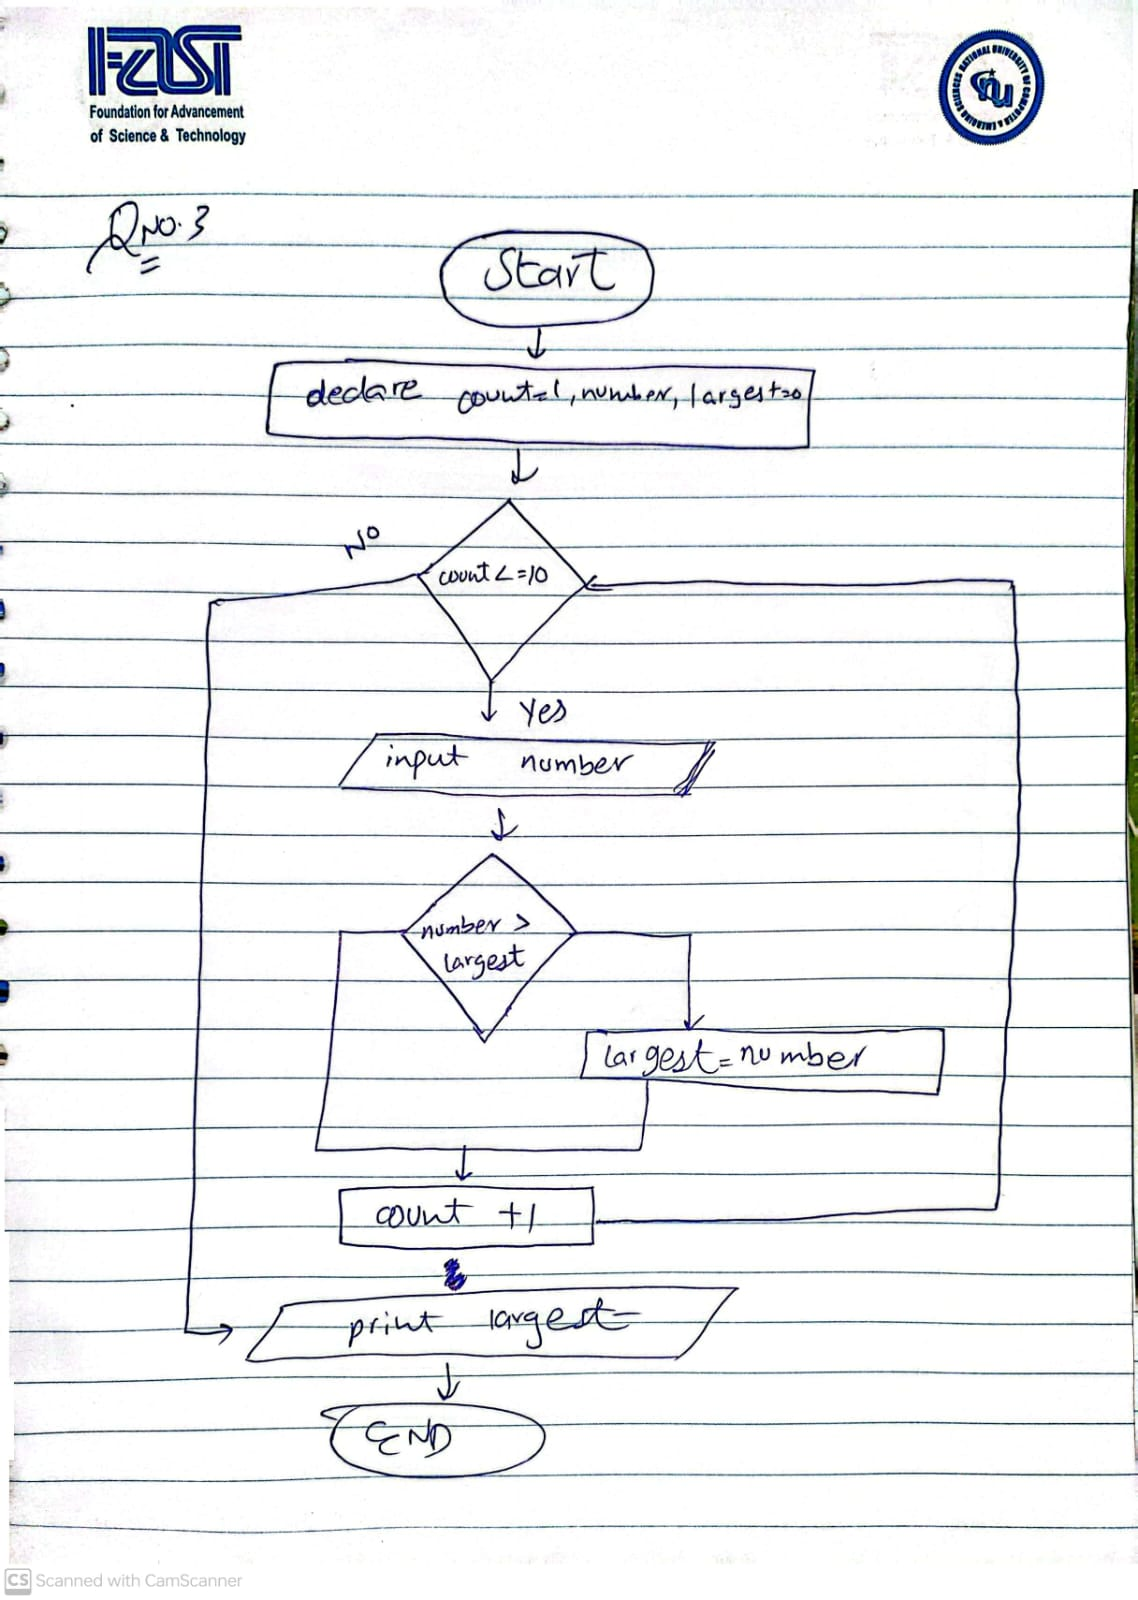 FAST
Foundation for Advancement
of Science & Technology
NATIONAL UNIVERSITY OF COMPUTER & EMERGING SCIENCES
nu
QNO.3
Start
declare count=1, number, largest=0
No
count <=10
Yes
input number
number >
largest
largest=number
count +1
print largest=
END
CS Scanned with CamScanner